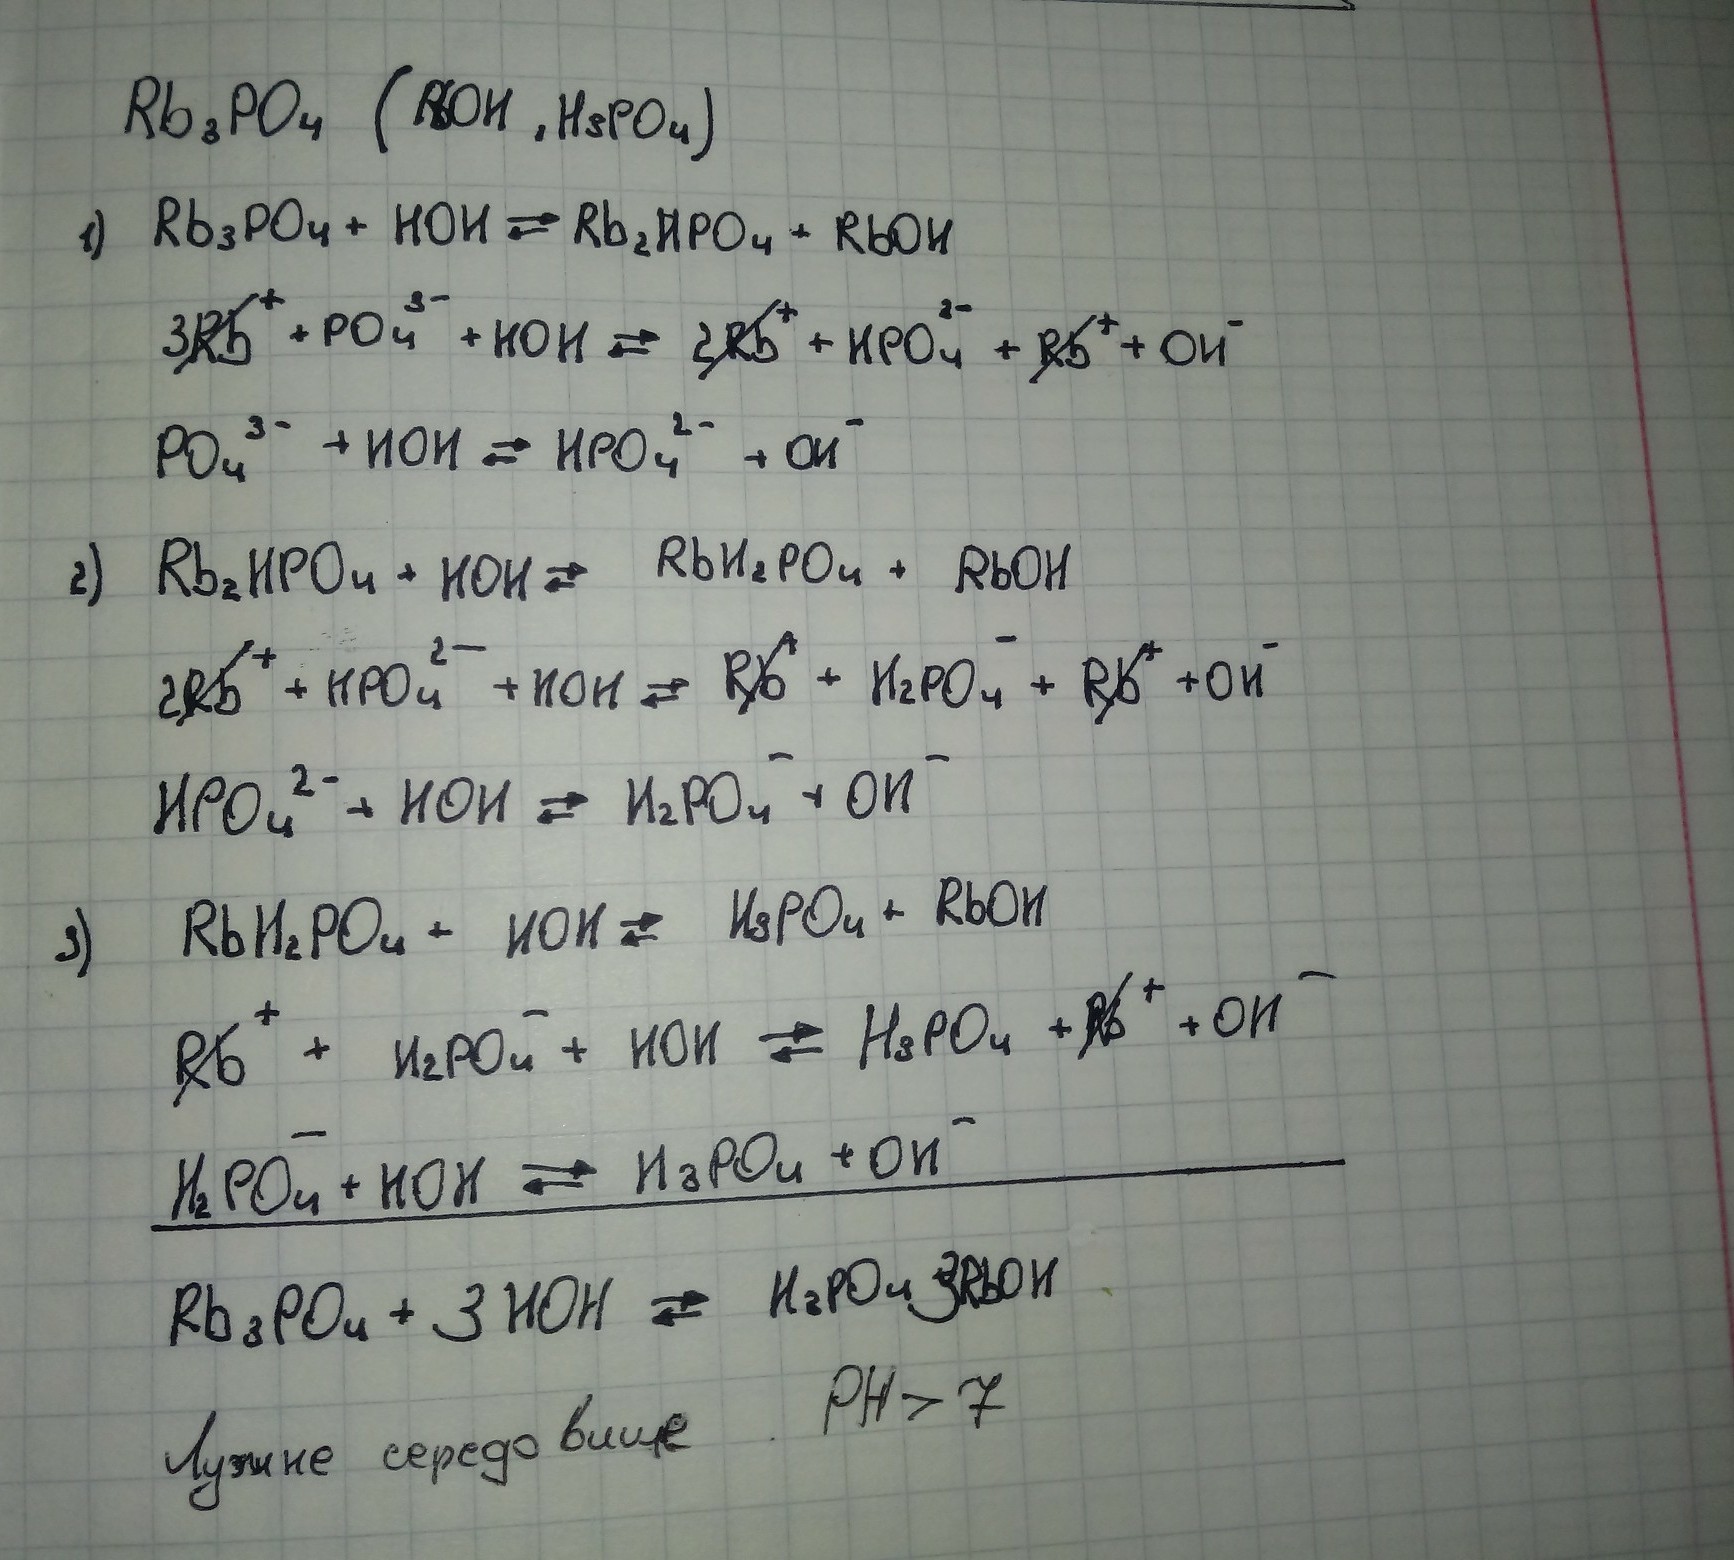 Rb₃PO₄ (RbOH, H₃PO₄)
1) Rb₃PO₄ + HOH ⇄ Rb₂HPO₄ + RbOH
3Rb⁺ + PO₄³⁻ + HOH ⇄ 2Rb⁺ + HPO₄²⁻ + Rb⁺ + OH⁻
PO₄³⁻ + HOH ⇄ HPO₄²⁻ + OH⁻
2) Rb₂HPO₄ + HOH ⇄ RbH₂PO₄ + RbOH
2Rb⁺ + HPO₄²⁻ + HOH ⇄ Rb⁺ + H₂PO₄⁻ + Rb⁺ + OH⁻
HPO₄²⁻ + HOH ⇄ H₂PO₄⁻ + OH⁻
3) RbH₂PO₄ + HOH ⇄ H₃PO₄ + RbOH
Rb⁺ + H₂PO₄⁻ + HOH ⇄ H₃PO₄ + Rb⁺ + OH⁻
H₂PO₄⁻ + HOH ⇄ H₃PO₄ + OH⁻
Rb₃PO₄ + 3HOH ⇄ H₃PO₄ 3RbOH
Лужне середовище PH > 7